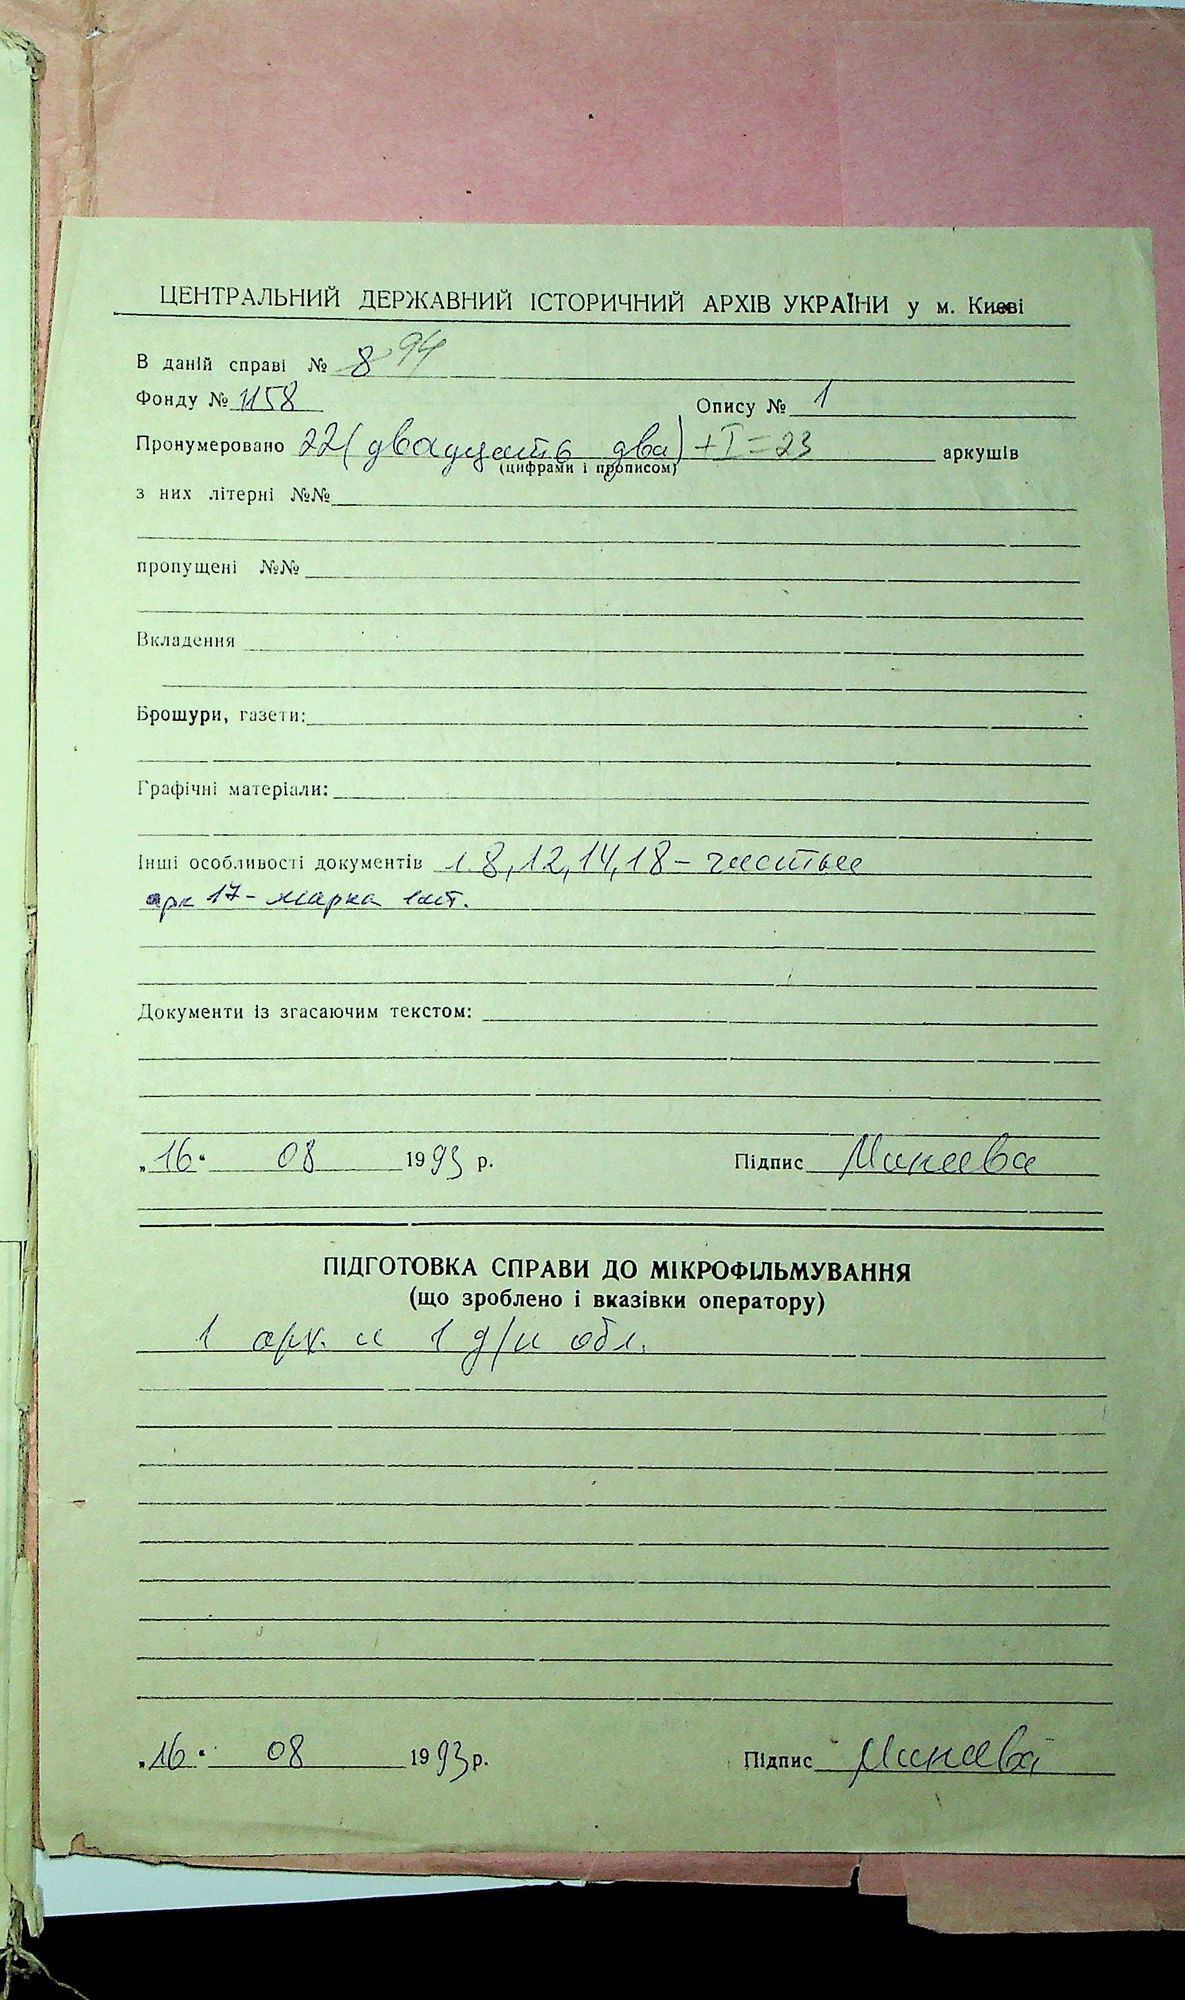 ЦЕНТРАЛЬНИЙ ДЕРЖАВНИЙ ІСТОРИЧНИЙ АРХІВ УКРАЇНИ у м. Києві
В даній справі № 894
Фонду № 1158 Опису № 1
Пронумеровано 22 (двадцать два) + I = 23 аркушів
(цифрами і прописом)
з них літерні №№
пропущені №№
Вкладення
Брошури, газети:
Графічні матеріали:
Інші особливості документів 1. 8, 12, 14, 18 - чистые
арк 17 - марка 1шт.
Документи із згасаючим текстом:
„16" 08 1993 р. Підпис Минеева
ПІДГОТОВКА СПРАВИ ДО МІКРОФІЛЬМУВАННЯ
(що зроблено і вказівки оператору)
1 арк. и 1 д/н обл.
„16" 08 1993 р. Підпис Минеева